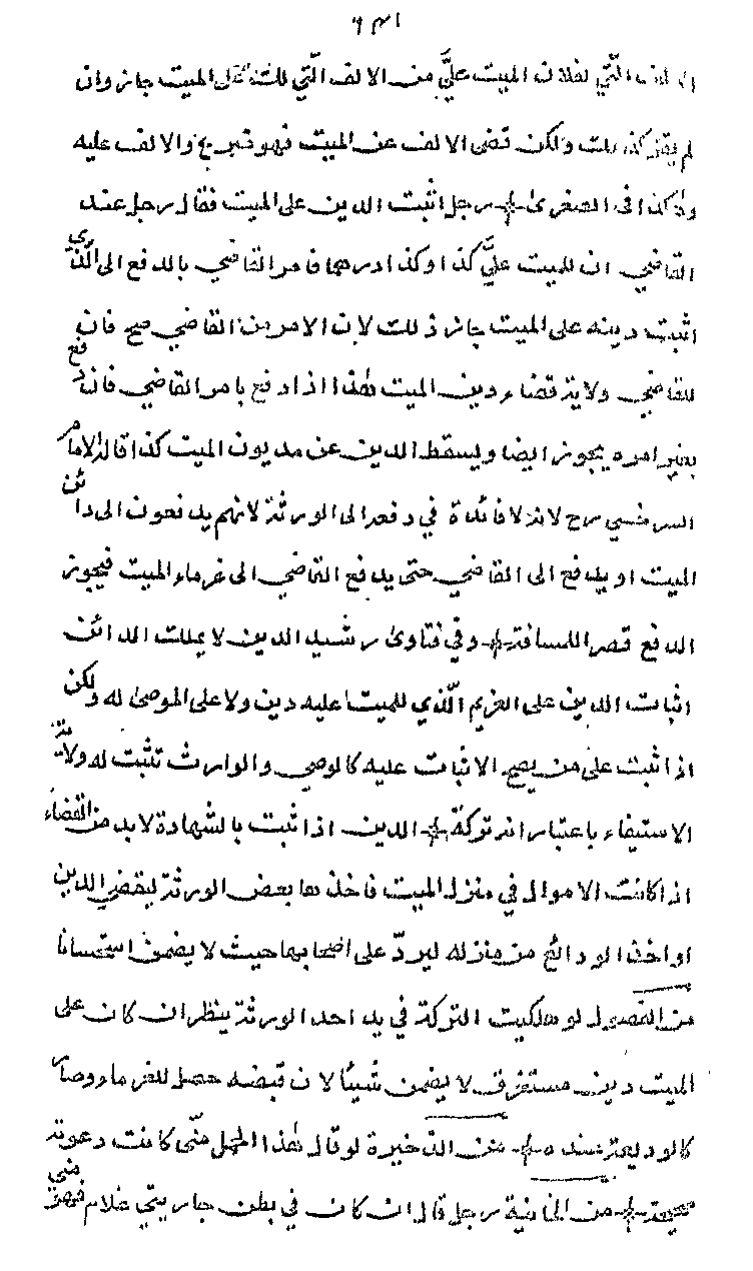 الالف التي لفلان الميت عليّ من الالف التي لك على الميت جاز وان
لم يقل كذلك ولكن قضى الالف عن الميت فهو تبرع والالف عليه
وهكذا فى الصغرىٰ رجل اثبت الدين على الميت فقال رجل عند
القاضي ان للميت عليّ كذا وكذا درهما فامر القاضي بالدفع الى الّذي
اثبت دينه على الميت جاز ذلك لان الامر من القاضي صح فان
للقاضي ولاية قضاء دين الميت هٰذا اذا دفع بامر القاضي فان دفع
بغير امره يجوز ايضا ويسقط الدين عن مديون الميت كذا قاله الامام
السرخسي رح لانه لا فائدة في دفعه الى الورثة لانهم يدفعون الى دائن
الميت او يدفع الى القاضي حتى يدفع القاضي الى غرماء الميت فيجوز
الدفع قصر اللمسافة وفي فتاوىٰ رشيد الدين لا يملك الدائن
اثبات الدين على الغريم الّذي للميت عليه دين ولا على الموصىٰ له ولكن
اذا ثبت على من يصح الاثبات عليه كالوصي والوارث تثبت له ولاية
الاستيفاء باعتبار انه تركة الدين اذا ثبت بالشهادة لا بد من القضاء
اذا كانت الاموال في منزل الميت فاخذها بعض الورثة ليقضي الدين
او اخذ الودائع من منزله ليردّ على اصحابها حيث لا يضمن استحسانا
من الفصول لو هلكت التركة في يد احد الورثة ينظر ان كان على
الميت دين مستغرق لا يضمن شيئا لان قبضه حصل للغرماء وصار
كالوديعة عنده من الذخيرة لو قال هٰذا الحمل منّي كانت دعوته
صحيحة من الخانية رجل قال ان كان في بطن جاريتي غلام فهو منّي